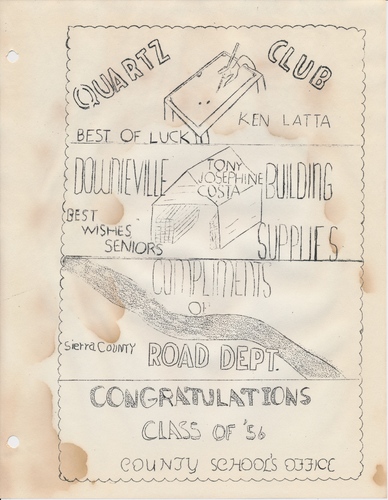 QUARTZ CLUB
KEN LATTA
BEST OF LUCK
DOWNIEVILLE BUILDING
TONY
JOSEPHINE
COSTA
BEST
WISHES
SENIORS
SUPPLIES
COMPLIMENTS
OF
Sierra COUNTY
ROAD DEPT.
CONGRATULATIONS
CLASS OF '56
COUNTY SCHOOL'S OFFICE